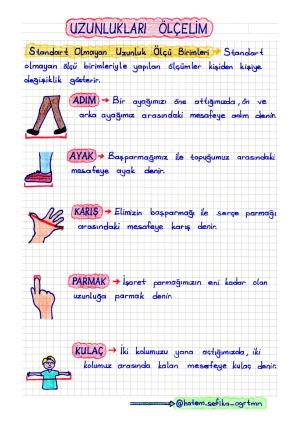 UZUNLUKLARI ÖLÇELİM
Standart Olmayan Uzunluk Ölçü Birimleri → Standart
olmayan ölçü birimleriyle yapılan ölçümler kişiden kişiye
değişiklik gösterir.
ADIM → Bir ayağımızı öne attığımızda, ön ve
arka ayağımız arasındaki mesafeye adım denir.
AYAK → Başparmağımız ile topuğumuz arasındaki
mesafeye ayak denir.
KARIŞ → Elimizin başparmağı ile serçe parmağı
arasındaki mesafeye karış denir.
PARMAK → İşaret parmağımızın eni kadar olan
uzunluğa parmak denir.
KULAÇ → İki kolumuzu yana açtığımızda, iki
kolumuz arasında kalan mesafeye kulaç denir.
→ @kalem_sefika_ogrtmn